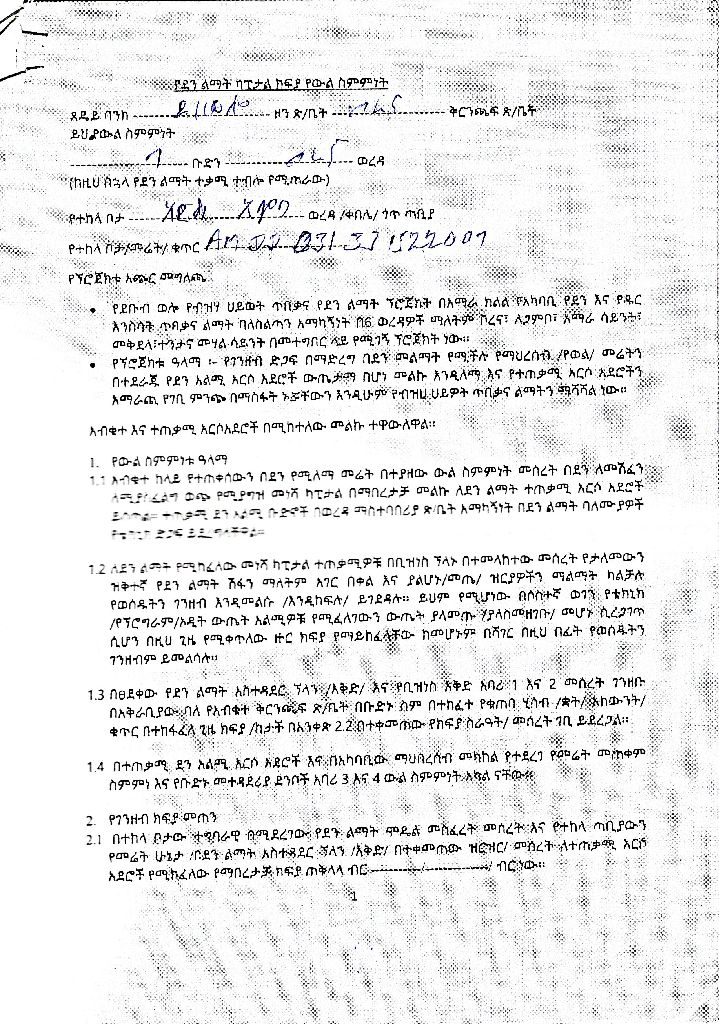 የደን ልማት ካፒታል ክፍያ የውል ስምምነት
ጸደይ ባንክ ደ/ወሎ ዞን ጽ/ቤት ቅርንጫፍ ጽ/ቤት
ይህ የውል ስምምነት
ቡድን ወረዳ
(ከዚህ በኋላ የደን ልማት ተቃሚ ተብሎ የሚጠራው)
የተከላ ቦታ አምባ ወረዳ /ቀበሌ/ ጎጥ ጣቢያ
የተከላ ቦታ/መሬት/ ቁጥር
የፕሮጀክቱ አጭር መግለጫ
• የደቡብ ወሎ የብዝሃ ሀይወት ጥበቃና የደን ልማት ፕሮጀክት በአማራ ክልል የአካባቢ የደን እና የዱር
እንስሳት ጥበቃና ልማት ባለስልጣን አማካኝነት በ6 ወረዳዎች ማለትም ቦረና፣ ለጋምቦ፣ አማራ ሳይንት፣
መቅደላ፣ተንታና መሃል ሳይንት በመተግበር ላይ የሚገኝ ፕሮጀክት ነው።
• የፕሮጀክቱ ዓላማ ፡- የገንዘብ ድጋፍ በማድረግ በደን መልማት የሚችሉ የማህረሰብ /የወል/ መሬትን
በተደራጁ የደን አልሚ አርሶ አደሮች ውጤታማ በሆነ መልኩ እንዲለማ እና የተጠቃሚ አርሶ አደሮችን
አማራጪ የገቢ ምንጭ በማስፋት ኑሯቸውን እንዲሁም የብዝሀ ሀይዎት ጥበቃና ልማትን ማሻሻል ነው።
አብቁተ እና ተጠቃሚ አርሶአደሮች በሚከተለው መልኩ ተዋውለዋል።
1. የውል ስምምነቱ ዓላማ
1.1 አብቁተ ከላይ የተጠቀሰውን በደን የሚለማ መሬት በተያዘው ውል ስምምነት መሰረት በደን ለመሸፈን
ለሚያስፈልግ ወጭ የሚያግዝ መነሻ ካፒታል በማበረታቻ መልኩ ለደን ልማት ተጠቃሚ አርሶ አደሮች
ይሰጣል። ተጠቃሚ ደን አልሚ ቡድኖች በወረዳ ማስተባበሪያ ጽ/ቤት አማካኝነት በደን ልማት ባለሙያዎች
የቴክኒክ ድጋፍ
1.2 ለደን ልማት የሚከፈለው መነሻ ካፒታል ተጠቃሚዎቹ በቢዝነስ ፕላኑ በተመላከተው መሰረት የታለመውን
ዝቅተኛ የደን ልማት ሽፋን ማለትም አገር በቀል እና ያልሆኑ/መጤ/ ዝርያዎችን ማልማት ካልቻሉ
የወሰዱትን ገንዘብ እንዲመልሱ /እንዲከፍሉ/ ይገደዳሉ። ይህም የሚሆነው በሶስተኛ ወገን የቴክኒክ
/የፕሮግራም/ኦዲት ውጤት አልሚዎቹ የሚፈለገውን ውጤት ያላመጡ /ያላስመዘገቡ/ መሆኑ ሲረጋገጥ
ሲሆን በዚህ ጊዜ የሚቀጥለው ዙር ክፍያ የማይከፈላቸው ከመሆኑም በሻገር በዚህ በፊት የወሰዱትን
ገንዘብም ይመልሳሉ።
1.3 በፀደቀው የደን ልማት አስተዳደር ፕላን /እቅድ/ እና የቢዝነስ እቅድ አባሪ 1 እና 2 መሰረት ገንዘቡ
በአቅራቢያው ባለ የአብቁተ ቅርንጫፍ ጽ/ቤት በቡድኑ ስም በተከፈተ የቁጠባ ሂሳብ /ቋት/ አካውንት/
ቁጥር በተከፋፈለ ጊዜ ክፍያ /ከታች በአንቀጽ 2.2 በተቀመጠው የክፍያ ስራዓት/ መሰረት ገቢ ይደረጋል።
1.4 በተጠቃሚ ደን አልሚ አርሶ አደሮች እና በአካባቢው ማህበረሰብ መካከል የተደረገ የመሬት መጠቀም
ስምምነ እና የቡድኑ መተዳደሪያ ደንቦች አባሪ 3 እና 4 ውል ስምምነት አካል ናቸው።
2. የገንዘብ ክፍያ መጠን
2.1 በተከላ ቦታው ተግባራዊ በሚደረገው የደን ልማት ሞዴል መስፈረት መሰረት እና የተከላ ጣቢያውን
የመሬት ሁኔታ /በደን ልማት አስተዳደር ፕላን /እቅድ/ በተቀመጠው ዝርዝር/ መሰረት ለተጠቃሚ አርሶ
አደሮች የሚከፈለው የማበረታቻ ክፍያ ጠቅላላ ብር -----------/--------------/ ብር ነው።
1